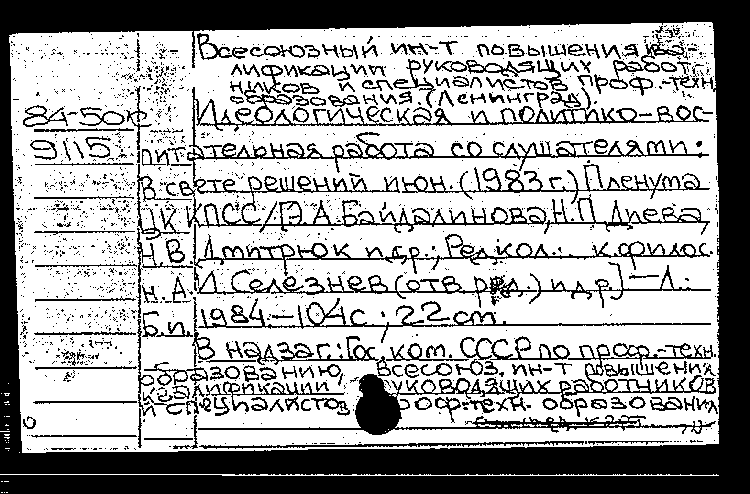 Всесоюзный ин-т повышения ква-
лификации руководящих работ-
ников и специалистов проф.-техн.
образования. (Ленинград).
84-50к Идеологическая и политико-вос-
9115 питательная работа со слушателями:
В свете решений июн. (1983 г.) Пленума
ЦК КПСС/[Э.А. Байдалинова, Н.П. Диева,
Н.В. Дмитрюк и др.; Редкол.: к.филос.
н. А.И. Селезнев (отв. ред.) и др.] — Л.:
Б.и. 1984. — 104 с.; 22 см.
В надзаг.: Гос. ком. СССР по проф.-техн.
образованию, Всесоюз. ин-т повышения
квалификации руководящих работников
и специалистов проф.-техн. образования